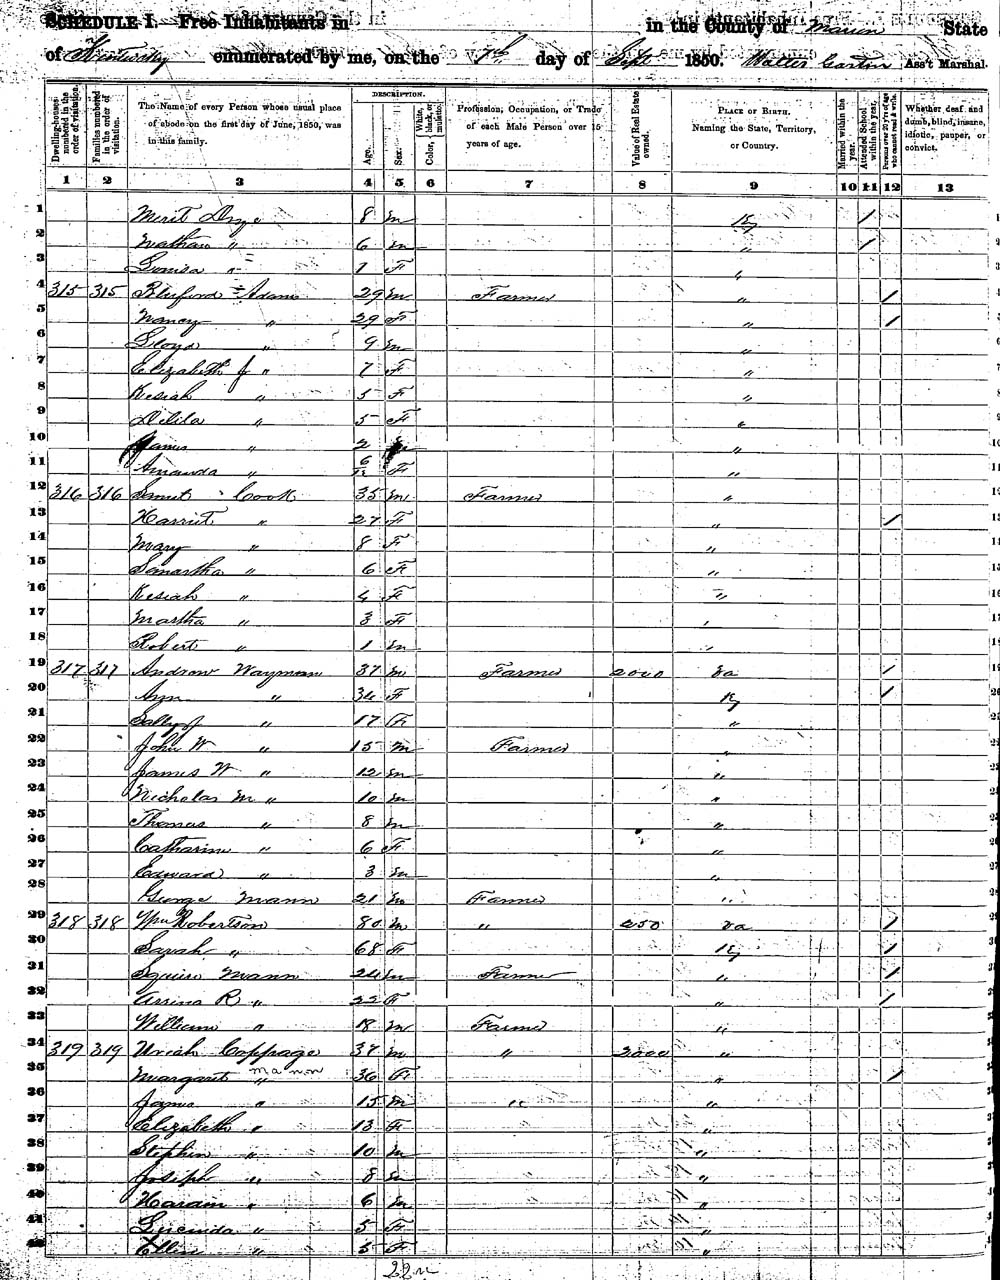 SCHEDULE I. Free Inhabitants in in the County of Marion State
of Kentucky enumerated by me, on the 7th day of Sept 1850. Walter Ass't Marshal.
Dwelling-houses numbered in the order of visitation. Families numbered in the order of visitation. The Name of every Person whose usual place of abode on the first day of June, 1850, was in this family. DESCRIPTION. Age. Sex. Color, White, black, or mulatto. Profession, Occupation, or Trade of each Male Person over 15 years of age. Value of Real Estate owned. PLACE OF BIRTH. Naming the State, Territory, or Country. Married within the year. Attended School within the year. Persons over 20 y'rs of age who cannot read & write. Whether deaf and dumb, blind, insane, idiotic, pauper, or convict.
1 2 3 4 5 6 7 8 9 10 11 12 13
1 Merit 8 m Ky / 1
2 Nathan " 6 m " / 2
3 Louisa " 1 F " 3
4 315 315 Bluford Adams 29 m Farmer " / 4
5 Nancy " 29 F " / 5
6 " 9 m " 6
7 Elizabeth J " 7 F " 7
8 Kesiah " 5 F " 8
9 Delila " 5 F " 9
10 James " 2 m " 10
11 Amanda " 6/12 F " 11
12 316 316 Saml Cook 35 m Farmer " 12
13 Harriet " 27 F " / 13
14 Mary " 8 F " 14
15 Samartha " 6 F " 15
16 Kesiah " 4 F " 16
17 Martha " 3 F " 17
18 Robert " 1 m " 18
19 317 317 Andrew Wayman 37 m Farmer 2000 Va /
20 Ann " 34 F Ky /
21 Sally J " 17 F "
22 John W " 15 m Farmer "
23 James W " 12 m "
24 Nicholas M " 10 m "
25 Thomas " 8 m "
26 Catharine " 6 F "
27 Edward " 3 m "
28 George Mann 21 m Farmer "
29 318 318 Wm Robertson 80 m " 250 Va /
30 Sarah " 68 F Ky /
31 Squire Mann 24 m Farmer " /
32 R " 22 F " /
33 William " 18 m Farmer "
34 319 319 Uriah Coppage 37 m " 2000 "
35 Margaret " Mann 36 F " /
36 James " 15 m " "
37 Elizabeth " 13 F "
38 Stephen " 10 m "
39 Joseph " 8 m "
40 Haram " 6 m "
41 Lucinda " 5 F "
42 Ellen " 5 F "
22 m